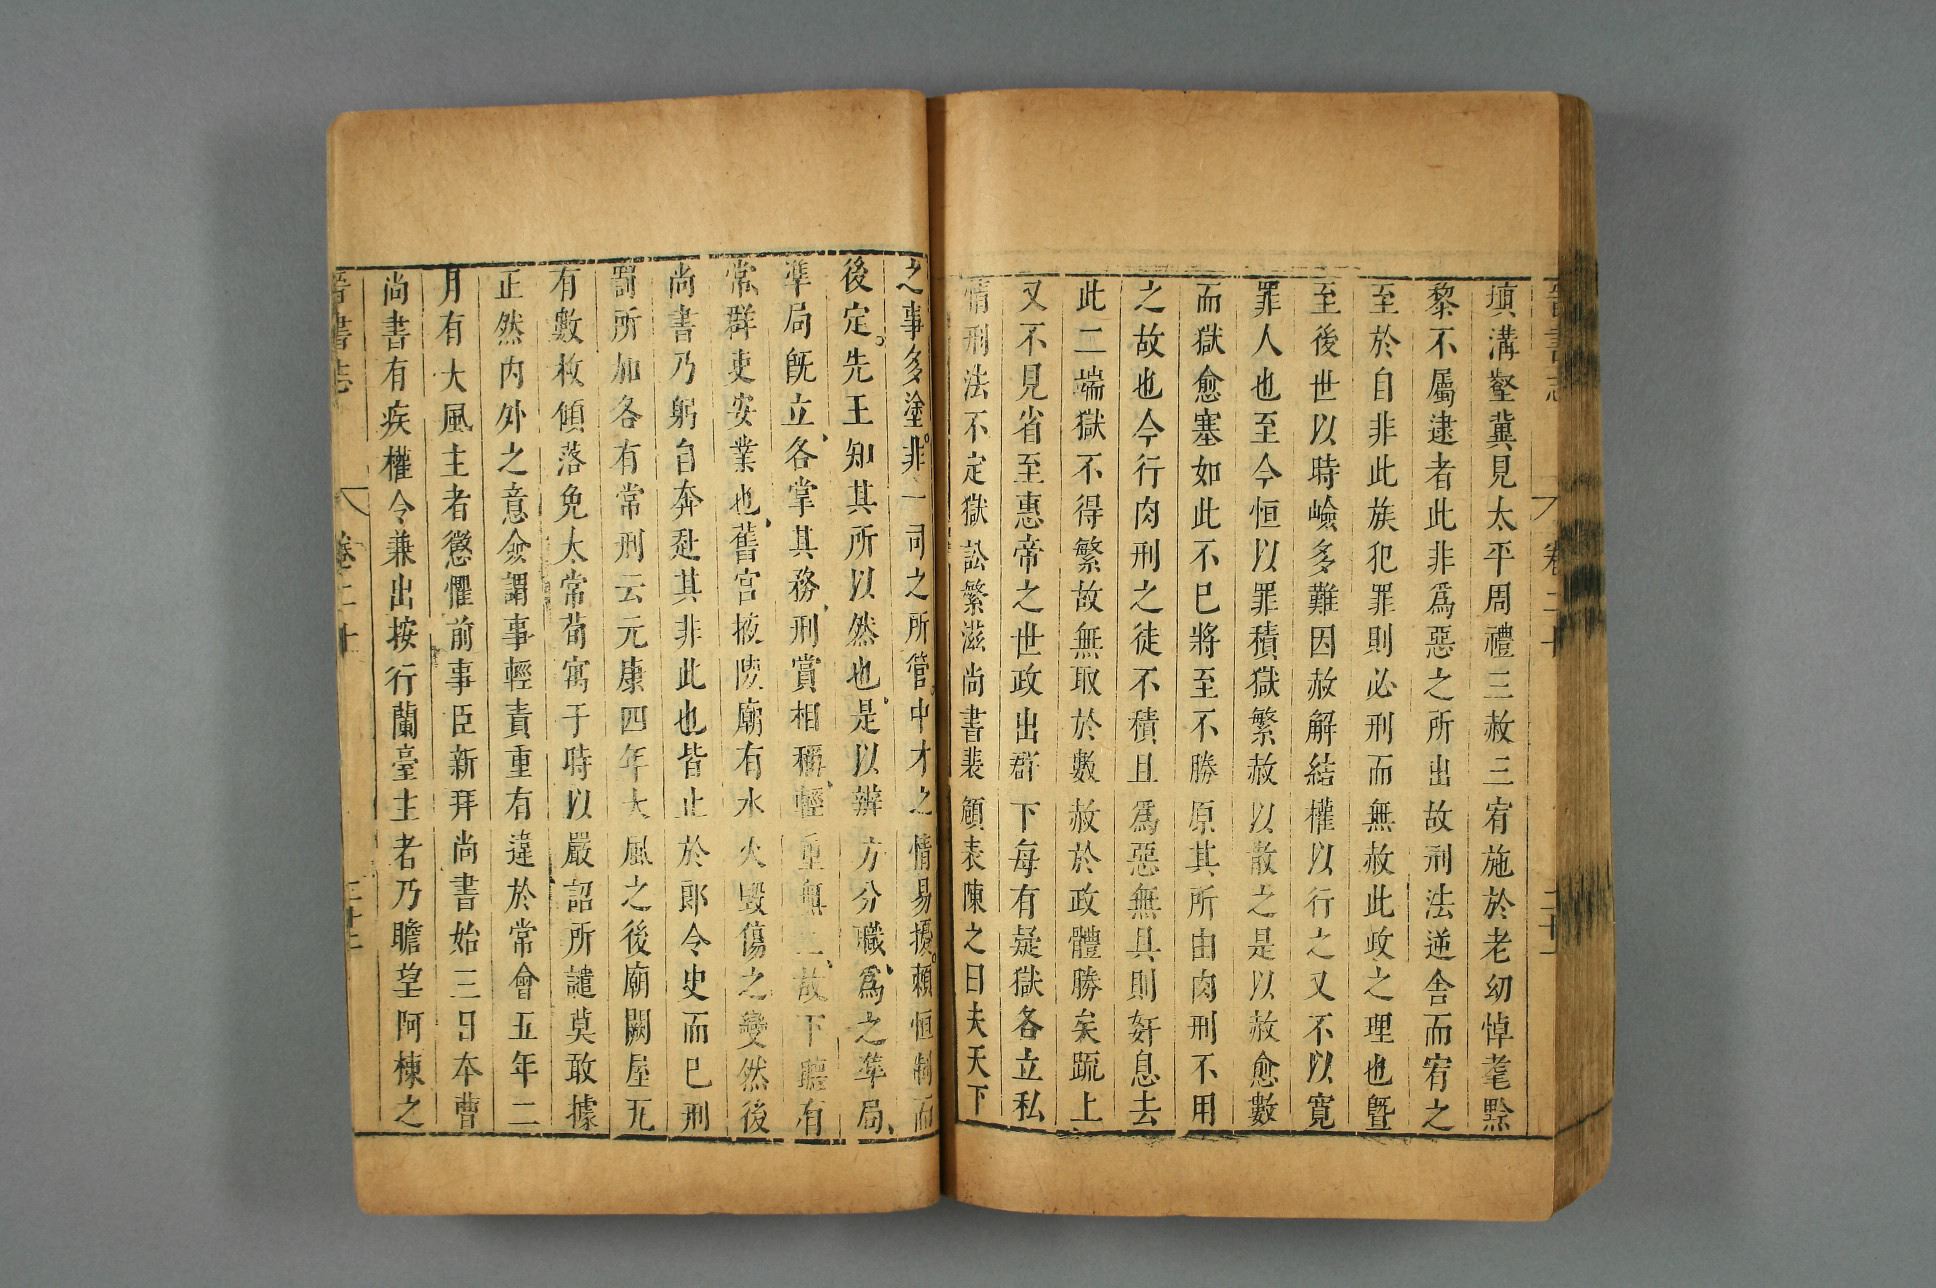 填溝壑冀見太平周禮三赦三宥施於老幼悼耄黥
黎不屬逮者此非爲惡之所出故刑法逆舍而宥之
至於自非此族犯罪則必刑而無赦此政之理也曁
至後世以時嶮多難因赦解結權以行之又不以寬
罪人也至今恒以罪積獄繁赦以散之是以赦愈數
而獄愈塞如此不已將至不勝原其所由肉刑不用
之故也今行肉刑之徒不積且爲惡無具則奸息去
此二端獄不得繁故無取於數赦於政體勝矣䟽上
又不見省至惠帝之世政出群下每有疑獄各立私
情刑法不定獄訟繁滋尚書裴頠表陳之曰夫天下
之事多塗非一司之所管中才之情易擾賴恒制而
後定先王知其所以然也是以辨方分職爲之準局
準局旣立各掌其務刑賞相稱輕重無二故下聽有
常群吏安業也舊宮掖陵廟有水火毀傷之變然後
尚書乃躬自奔赴其非此也皆止於郎令史而已刑
罰所加各有常刑云元康四年大風之後廟闕屋瓦
有數枚傾落免太常荀㝢于時以嚴詔所譴莫敢據
正然内外之意僉謂事輕責重有違於常會五年二
月有大風主者懲懼前事臣新拜尚書始三日本曹
尚書有疾權令兼出按行蘭臺主者乃瞻望阿棟之
晉書志 卷三十 二十二